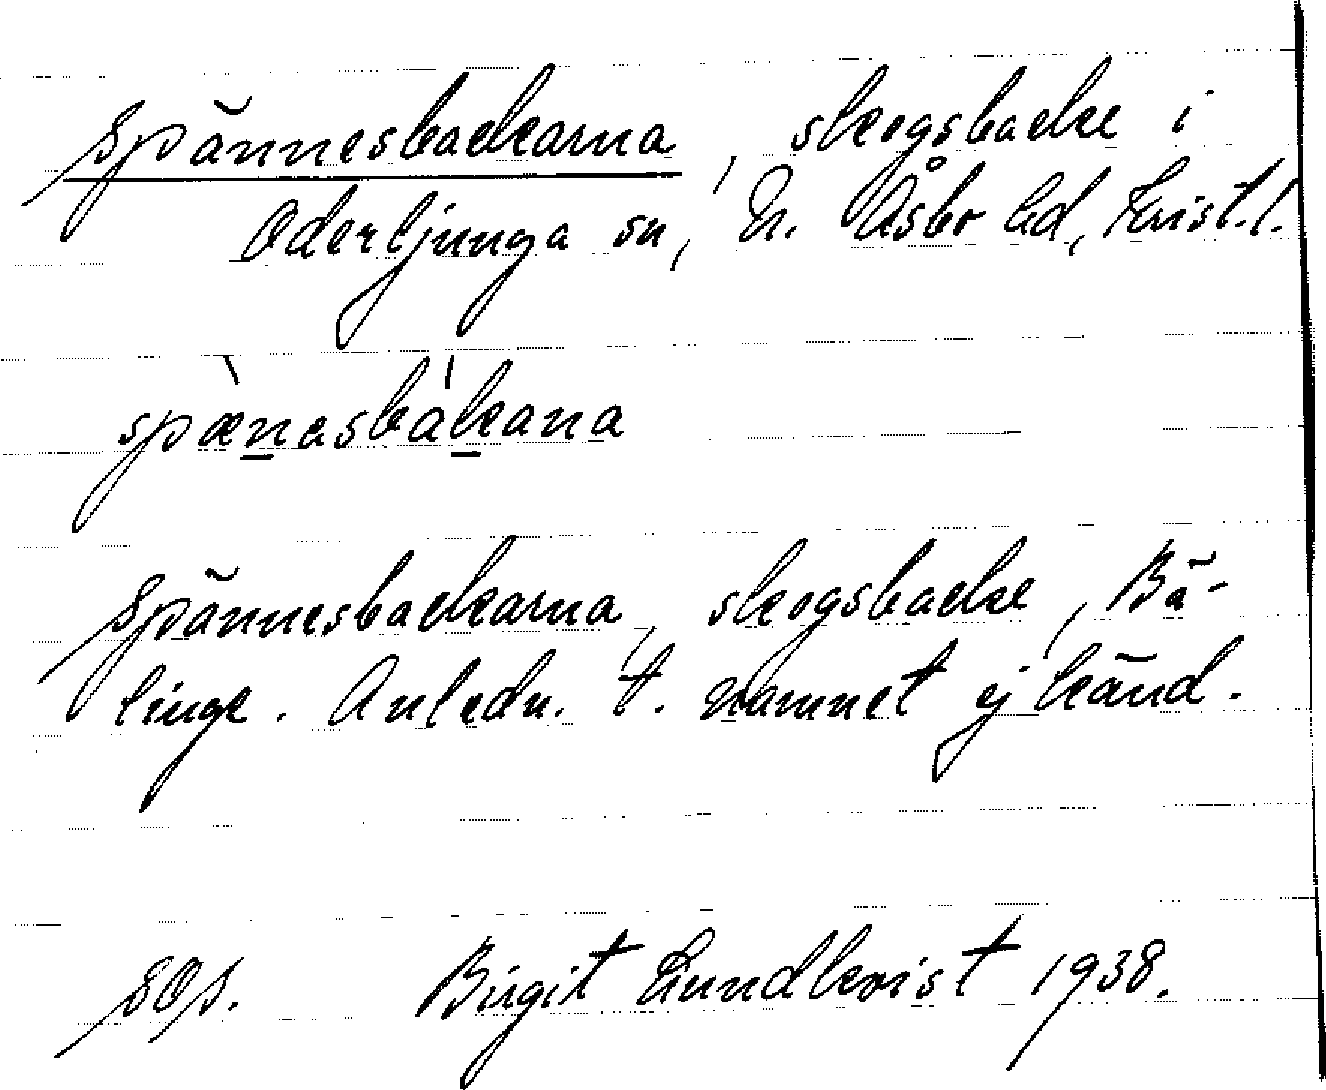 Spännesbackarna, skogsbacke i
Oderljunga sn, N. Åsbo hd, Krist. l.
spænasbakana
Spännesbackarna, skogsbacke, Bä-
linge. Anledn. t. namnet ej känd.
Birgit Lundkvist 1938.